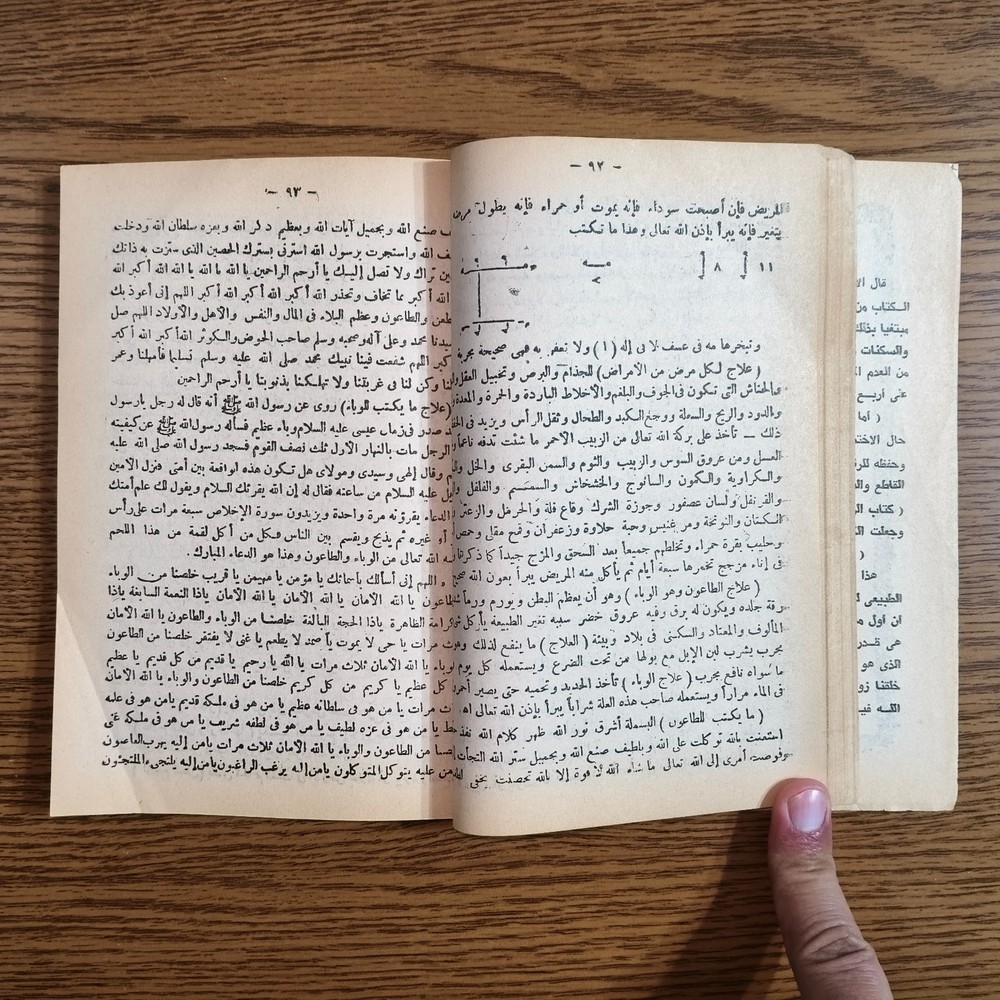 - ٩٢ -
المريض فإن أصبحت سوداء فإنه يموت أو حمراء فإنه يطول مرض
يتغير فإنه يبرأ بإذن الله تعالى وهذا ما تكتب
١١ ٨
وتبخرها مه فى عسف لا نى إله (١) ولا تعفر به فهى صحيحة مجربة
(علاج لكل مرض من الأمراض) للجذام والبرص وتخبيل العقل
والحناش التى تكون فى الجوف والبلغم والأخلاط الباردة والحمرة والمعدة
والدود والريح والسعلة ووجع الكبد والطحال وثقل الرأس ويزيد فى
ذلك — تأخذ على بركة الله تعالى من الزبيب الأحمر ما شئت تدقه ناعما
العسل ومن عروق السوس والزبيب والثوم والسمن البقرى والخل
والكراوية والكمون والسانوج والخشخاش والسمسم والفلفل
والقرنفل ولسان عصفور وجوزة الشرك وقاع قلة والحرمل والزعتر
الكتان والنوخة ومر غنيس وحبة حلاوة وزعفران وقمح مقلى وحمص
وحليب بقرة حمراء وتخلطهم جميعاً بعد السحق والمزج جيداً كما ذكرنا
فى إناء مزجج تخمرها سبعة أيام ثم يأكل منه المريض يبرأ بعون الله
(علاج الطاعون وهو الوباء) وهو أن يعظم البطن ويورم ورماً
رقة جلده ويكون له برق وفيه عروق خضر سببه تغير الطبيعة يأكل
المألوف والمعتاد والسكنى فى بلاد وبيئة (العلاج) ما ينفع لذلك
مجرب يشرب لبن الإبل مع بولها من تحت الضرع ويستعمله كل يوم
ما سواه نافع مجرب (علاج الوباء) تأخذ الحديد وتحميه حتى يصير أحمر
فى الماء مراراً ويستعمله صاحب هذه العلة شراباً يبرأ بإذن الله تعالى اهـ
(ما يكتب للطاعون) البسملة أشرق نور الله ظهر كلام الله
استعنت بالله توكلت على الله وبلطيف صنع الله وبجميل ستر الله التجأت
وفوضت أمرى إلى الله تعالى ما شاء الله لا قوة إلا بالله تحصنت بخفى
- ٩٣ -
صنع الله وبجميل آيات الله وبعظيم ذكر الله وبعزه سلطان الله ودخلت
الله واستجرت برسول الله استرنى بسترك الحصين الذى سترت به ذاتك
تراك ولا تصل إليك يا أرحم الراحمين يا الله يا الله يا الله الله أكبر الله
الله أكبر مما تخاف وتحذر الله أكبر الله أكبر الله أكبر اللهم إنى أعوذ بك
والطاعون وعظم البلاء فى المال والنفس والأهل والأولاد اللهم صل
محمد وعلى آله وصحبه وسلم صاحب الحوض والكوثر الله أكبر الله أكبر
اللهم شفعت فينا نبيك محمد صلى الله عليه وسلم تسليما فأمهلنا وعمر
وكن لنا فى غربتنا ولا تهلكنا بذنوبنا يا أرحم الراحمين
(علاج ما يكتب للوباء) روى عن رسول الله ﷺ أنه قال له رجل يا رسول
صدر فى زمان عيسى عليه السلام وباء عظيم فسأله رسول الله ﷺ عن كيفيته
الرجل مات بالنهار الأول ثلث نصف القوم فسجد رسول الله صلى الله عليه
وقال إلهى وسيدى ومولاى هل تكون هذه الواقعة بين أمتى فنزل الأمين
عليه السلام من ساعته فقال له إن الله يقرئك السلام ويقول لك علم أمتك
الدعاء يقرؤنه مرة واحدة ويزيدون سورة الإخلاص سبعة مرات على رأس
أو غيره ثم يذبح ويقسم بين الناس فكل من أكل لقمة من هذا اللحم
الله تعالى من الوباء والطاعون وهذا هو الدعاء المبارك .
اللهم إنى أسألك بأسمائك يا مؤمن يا مهيمن يا قريب خلصنا من الوباء
يا الله الأمان يا الله الأمان يا الله الأمان ياذا النعمة السابغة ياذا
الظاهرة ياذا الحجة البالغة خلصنا من الوباء والطاعون يا الله الأمان
مرات يا حى لا يموت يا صمد لا يطعم يا غنى لا يفتقر خلصنا من الطاعون
يا الله الأمان ثلاث مرات يا الله يا رحيم يا قديم من كل قديم يا عظيم
كل عظيم يا كريم من كل كريم خلصنا من الطاعون والوباء يا الله الأمان
مرات يا من هو فى سلطانه عظيم يا من هو فى ملكه قديم يا من هو فى علمه
يا من هو فى عزه لطيف يا من هو فى لطفه شريف يا من هو فى ملكه غنى
من الطاعون والوباء يا الله الأمان ثلاث مرات يا من إليه يهرب العاصون
من عليه يتوكل المتوكلون يا من إليه يرغب الراغبون يا من إليه يلتجىء الملتجئون
قال
الكتاب من
مبتغيا بذلك
والسكنات
من العدم
على أربع
( أما
حال
وحفظه
القاطع
( كتاب
وجعلت
هذا
الطبيعى
ان أول
هى
الذى هو
خلقنا